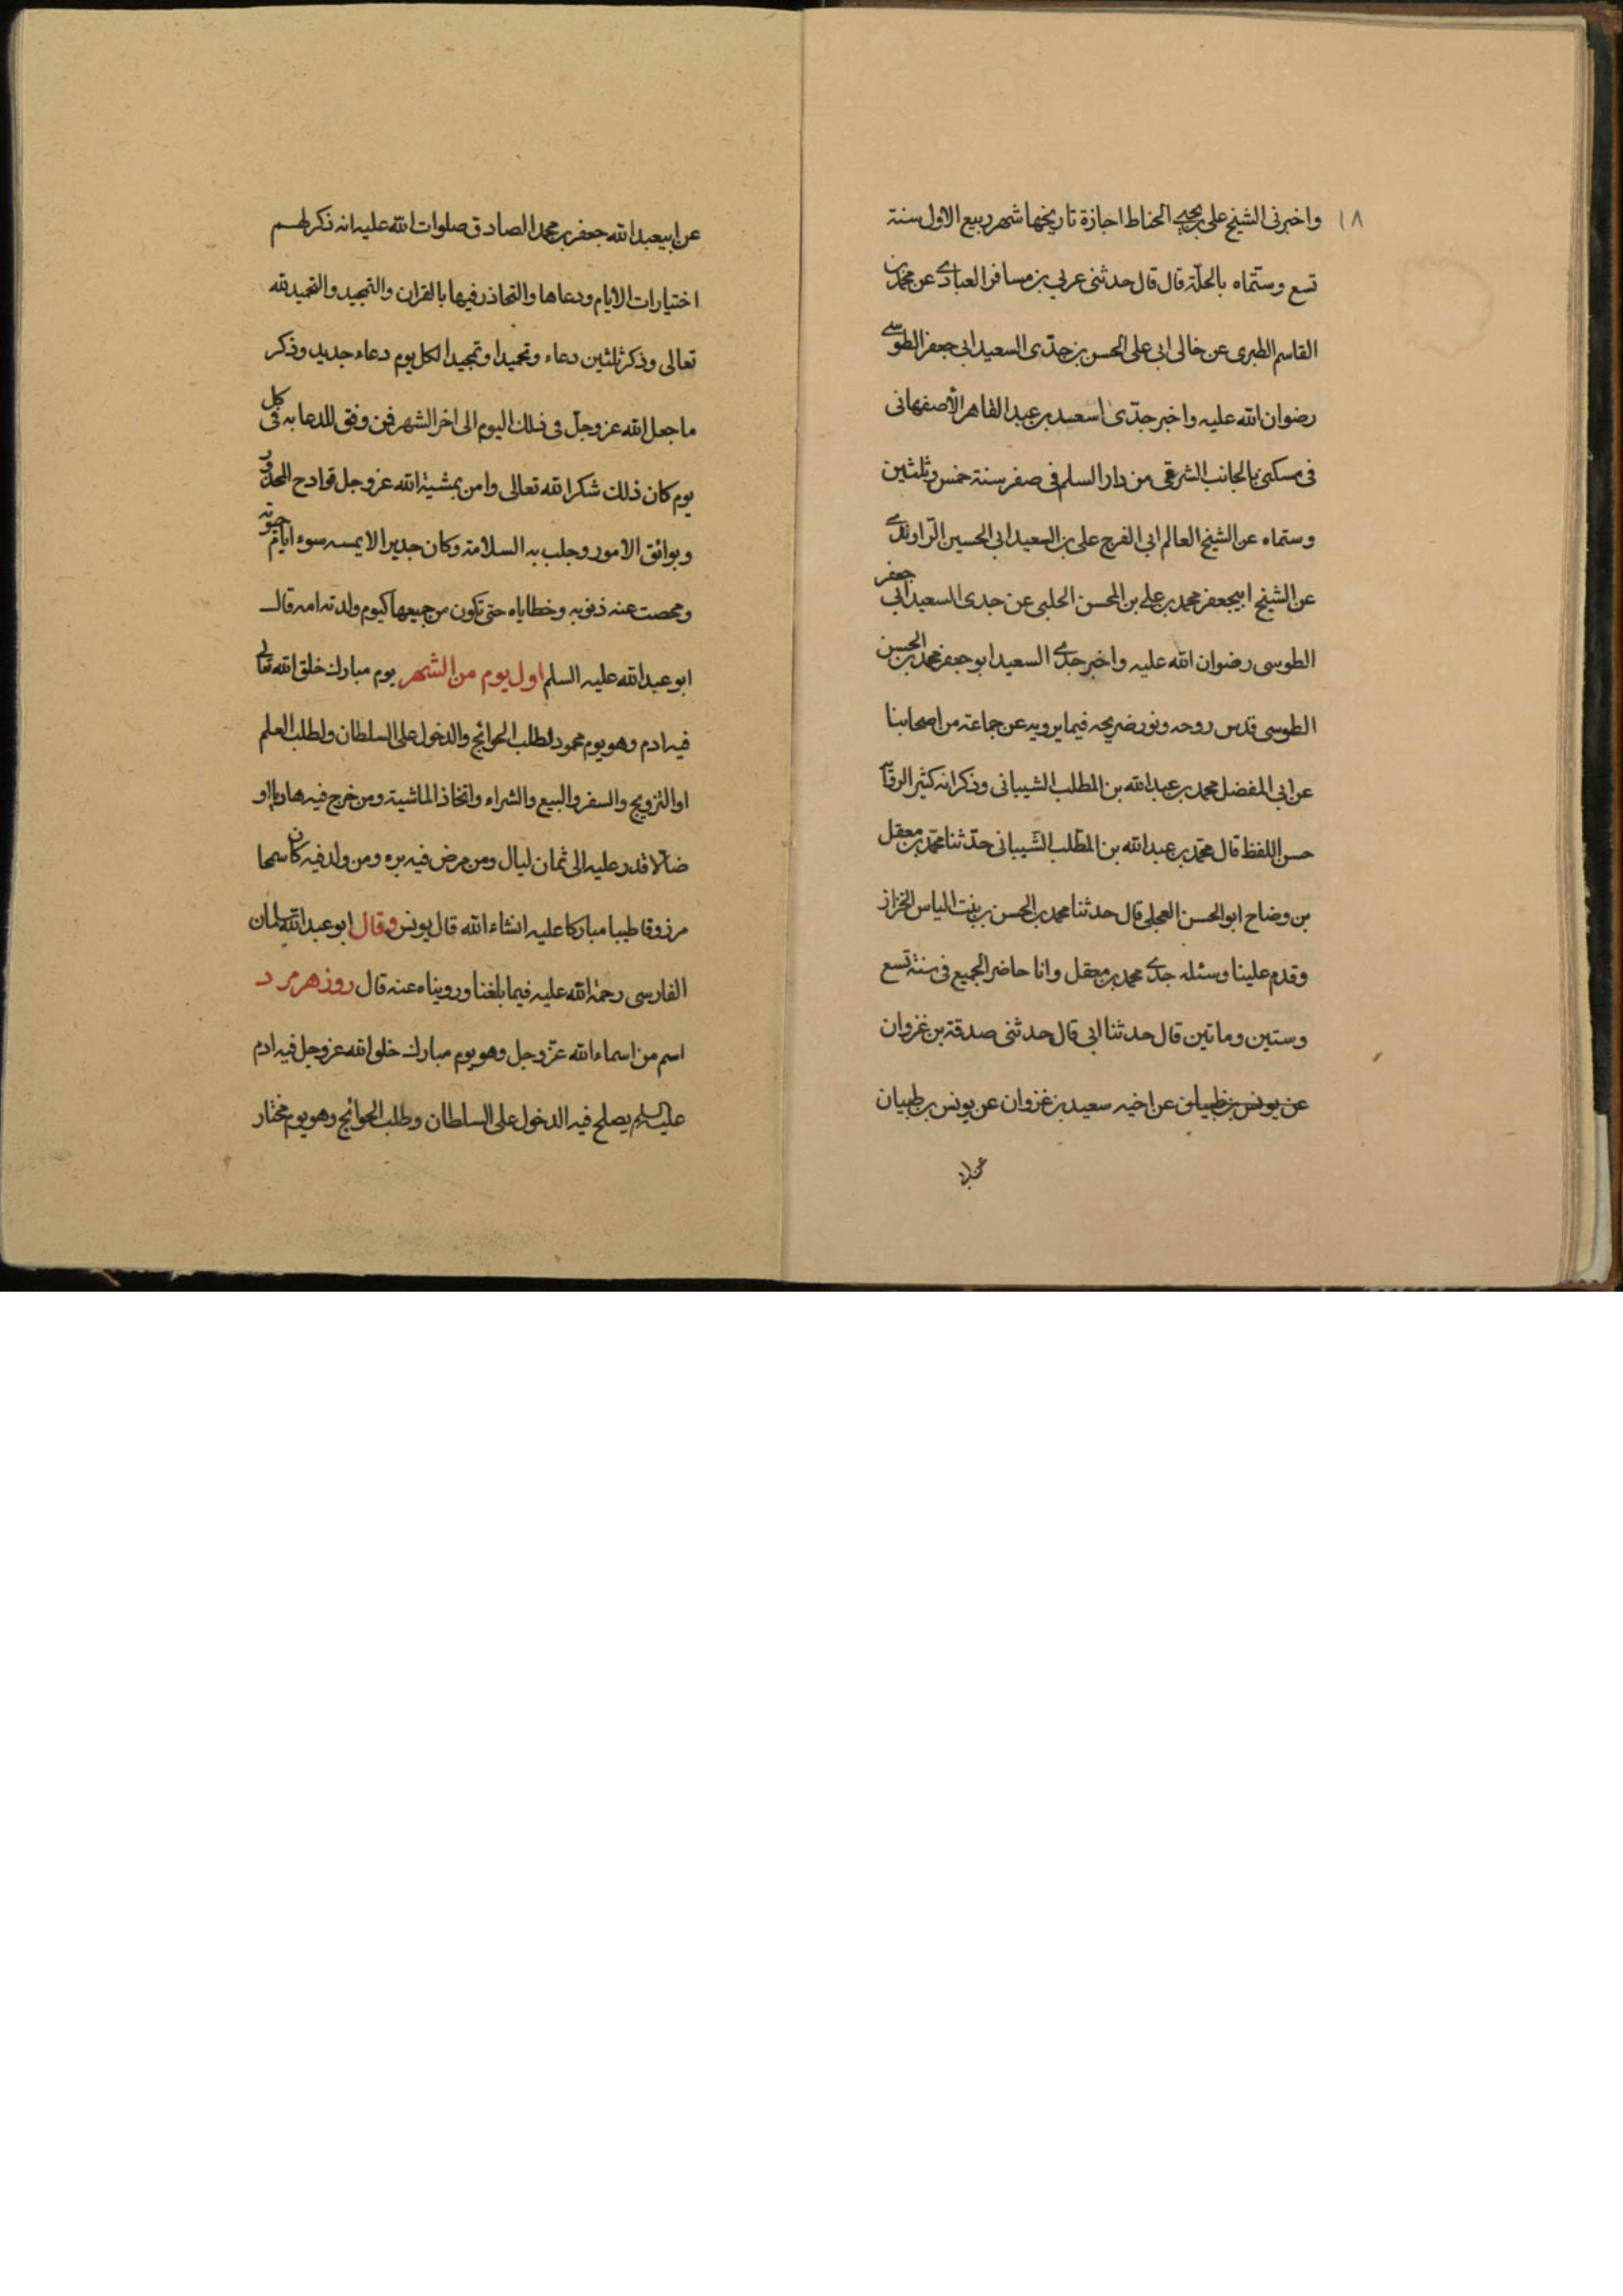 ١٨
واخبرنى الشيخ على بن يحيى الحناط اجازة تاريخها شهر ربيع الاول سنة
تسع وستماه بالحلة قال قال حدثنى عربي بن مسافر العبادى عن محمد بن
القاسم الطبرى عن خالى ابى على الحسن بن جدّى السعيد ابى جعفر الطوسى
رضوان الله عليه واخبر جدّى اسعد بن عبد القاهر الأصفهانى
فى مسكنى بالجانب الشرقى من دار السلم فى صفر سنة خمس وثلثين
وستماه عن الشيخ العالم ابى الفرج على بن السعيد ابى الحسين الرّاوندى
عن الشيخ ابيجعفر محمد بن على بن المحسن الحلبى عن جدى السعيد ابى جعفر
الطوسى رضوان الله عليه واخبر جدى السعيد ابو جعفر محمد بن الحسن
الطوسى قدس روحه ونور ضريحه فيما يرويه عن جماعة من اصحابنا
عن ابى المفضل محمد بن عبد الله بن المطلب الشيبانى وذكر انه كثير الرقاء
حسن اللفظ قال محمّد بن عبد الله بن المطّلب الشّيبانى حدّثنا محمّد بن معقل
بن وضاح ابو الحسن العجلى قال حدثنا محمد بن الحسن بن بنت الياس الخزاز
وقدم علينا وسئله جدى محمد بن معقل وانا حاضر الجميع فى سنة تسع
وستين وماتين قال حدثنا ابى قال حدثنى صدقة بن غزوان
عن يونس بن ظبيان عن اخيه سعيد بن غزوان عن يونس بن ظبيان
عن ابيعبد الله جعفر بن محمد الصادق صلوات الله عليه انه ذكر لهم
اختيارات الايام ودعاها والتحاذر فيها بالقران والتمجيد والتحميد لله
تعالى وذكر ثلثين دعاء وتحميدا وتمجيدا لكل يوم دعاء جديد وذكر
ما جعل الله عز وجل فى ذلك اليوم الى اخر الشهر فمن وفق للدعا به فى كل
يوم كان ذلك شكرا لله تعالى وامن بمشية الله عز وجل قوادح المحذور
وبوائق الامور وجلب به السلامة وكان جديرا الا يمسه سوء ايام حيوته
ومحصت عنه ذنوبه وخطاياه حتى تكون من جميعها كيوم ولدته امه قال
ابو عبد الله عليه السلم اول يوم من الشهر يوم مبارك خلق الله تعالى
فيه ادم وهو يوم محمود لطلب الحوائج والدخول على السلطان ولطلب العلم
او التزويج والسفر والبيع والشراء واتخاذ الماشية ومن خرج فيه هاربا او
ضالا قدر عليه الى ثمان ليال ومن مرض فيه بره ومن ولد فيه كان سمحا
مرزوقا طيبا مباركا عليه انشاء الله قال يونس وقال ابو عبد الله سلمان
الفارسى رحمة الله عليه فيما بلغنا ورويناه عنه قال روز هرمزد
اسم من اسماء الله عزّ وجل وهو يوم مبارك خلق الله عز وجل فيه ادم
عليه السلم يصلح فيه الدخول على السلطان وطلب الحوائج وهو يوم مختار